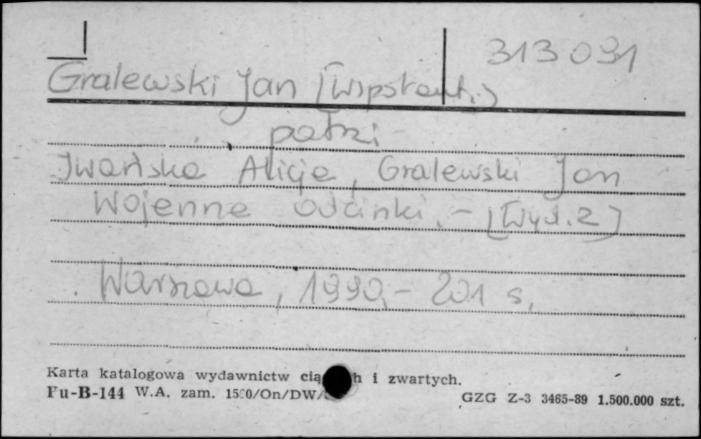 313031
Gralewski Jan [współaut.]
patrz
Iwańska Alicja, Gralewski Jan
Wojenne odcinki. - [Wyd. 2]
Warszawa, 1990, - 201 s,
Karta katalogowa wydawnictw h i zwartych.
Fu-B-144 W.A. zam. /On/DW/
GZG Z-3 3465-89 1.500.000 szt.